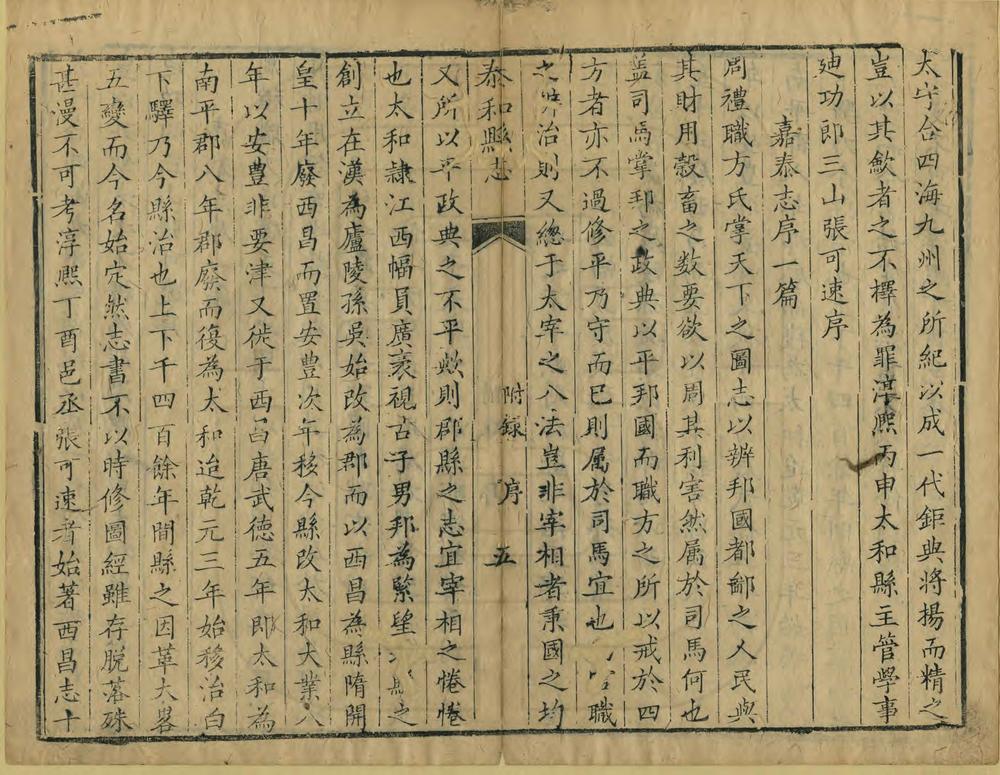 太宇合四海九州之所紀以成一代鉅典將揚而精之
豈以其歉者之不擇為罪淳熙丙申太和縣主管學事
廸功郎三山張可速序
嘉泰志序一篇
周禮職方氏掌天下之圖志以辨邦國都鄙之人民與
其財用榖畜之数要欲以周其利害然属於司馬何也
盖司馬掌邦之政典以平邦國而職方之所以戒於四
方者亦不過修平乃守而已則属於司馬宜也職
之治則又緫于太宰之八法豈非宰相者秉國之均
泰和縣志 附録 序 五
又所以平政典之不平歟則郡縣之志宜宰相之惓惓
也太和隷江西幅員廣袤視古子男邦為緊望縣之
創立在漢為廬陵孫吳始改為郡而以西昌為縣隋開
皇十年廢西昌而置安豊次年移今縣改太和大業八
年以安豊非要津又徙于西昌唐武德五年即太和為
南平郡八年郡廢而復為太和迨乾元三年始移治白
下驛乃今縣治也上下千四百餘年間縣之因革大畧
五變而今名始定然志書不以時修圖經雖存脱落殊
甚漫不可考淳熙丁酉邑丞張可速者始著西昌志十